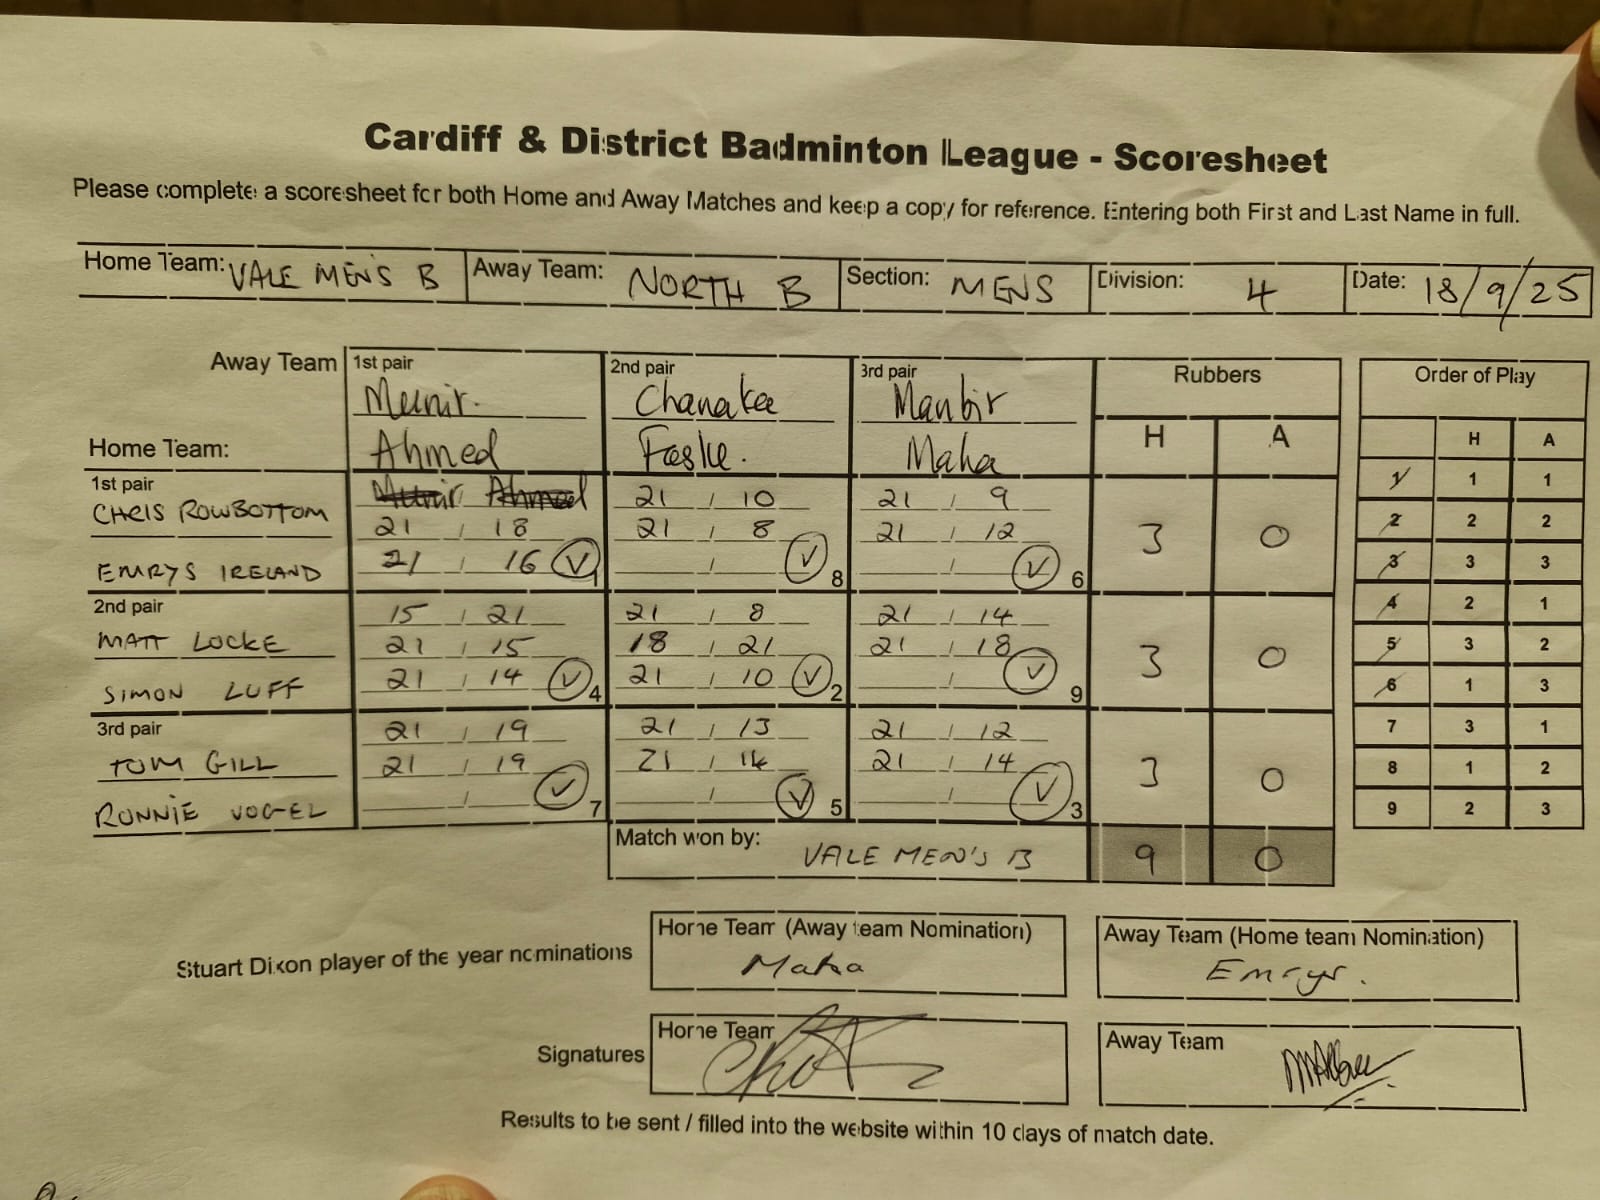 Cardiff & District Badminton League - Scoresheet
Please complete a scoresheet for both Home and Away Matches and keep a copy for reference. Entering both First and Last Name in full.
Home Team: VALE MEN'S B Away Team: NORTH B Section: MENS Division: 4 Date: 18/9/25
Away Team 1st pair 2nd pair 3rd pair Rubbers Order of Play
Munir Chanakee Manbir
H A H A
Home Team: Ahmed Maha
1st pair Munir Ahmed 21 / 10 21 / 9 1 1 1
CHRIS ROWBOTTOM 21 / 18 21 / 8 21 / 12 3 0 2 2 2
EMRYS IRELAND 21 / 16 V 1 / V 8 / V 6 3 3 3
2nd pair 15 / 21 21 / 8 21 / 14 4 2 1
MATT LOCKE 21 / 15 18 / 21 21 / 18 3 0 5 3 2
SIMON LUFF 21 / 14 V 4 21 / 10 V 2 / V 9 6 1 3
3rd pair 21 / 19 21 / 13 21 / 12 7 3 1
TOM GILL 21 / 19 21 / 14 21 / 14 3 0 8 1 2
RONNIE VOGEL / V 7 / V 5 / V 3 9 2 3
Match won by: VALE MEN'S B 9 0
Stuart Dixon player of the year nominations
Home Team (Away team Nomination) Away Team (Home team Nomination)
Maha Emrys.
Signatures Home Team Away Team
Results to be sent / filled into the website within 10 days of match date.